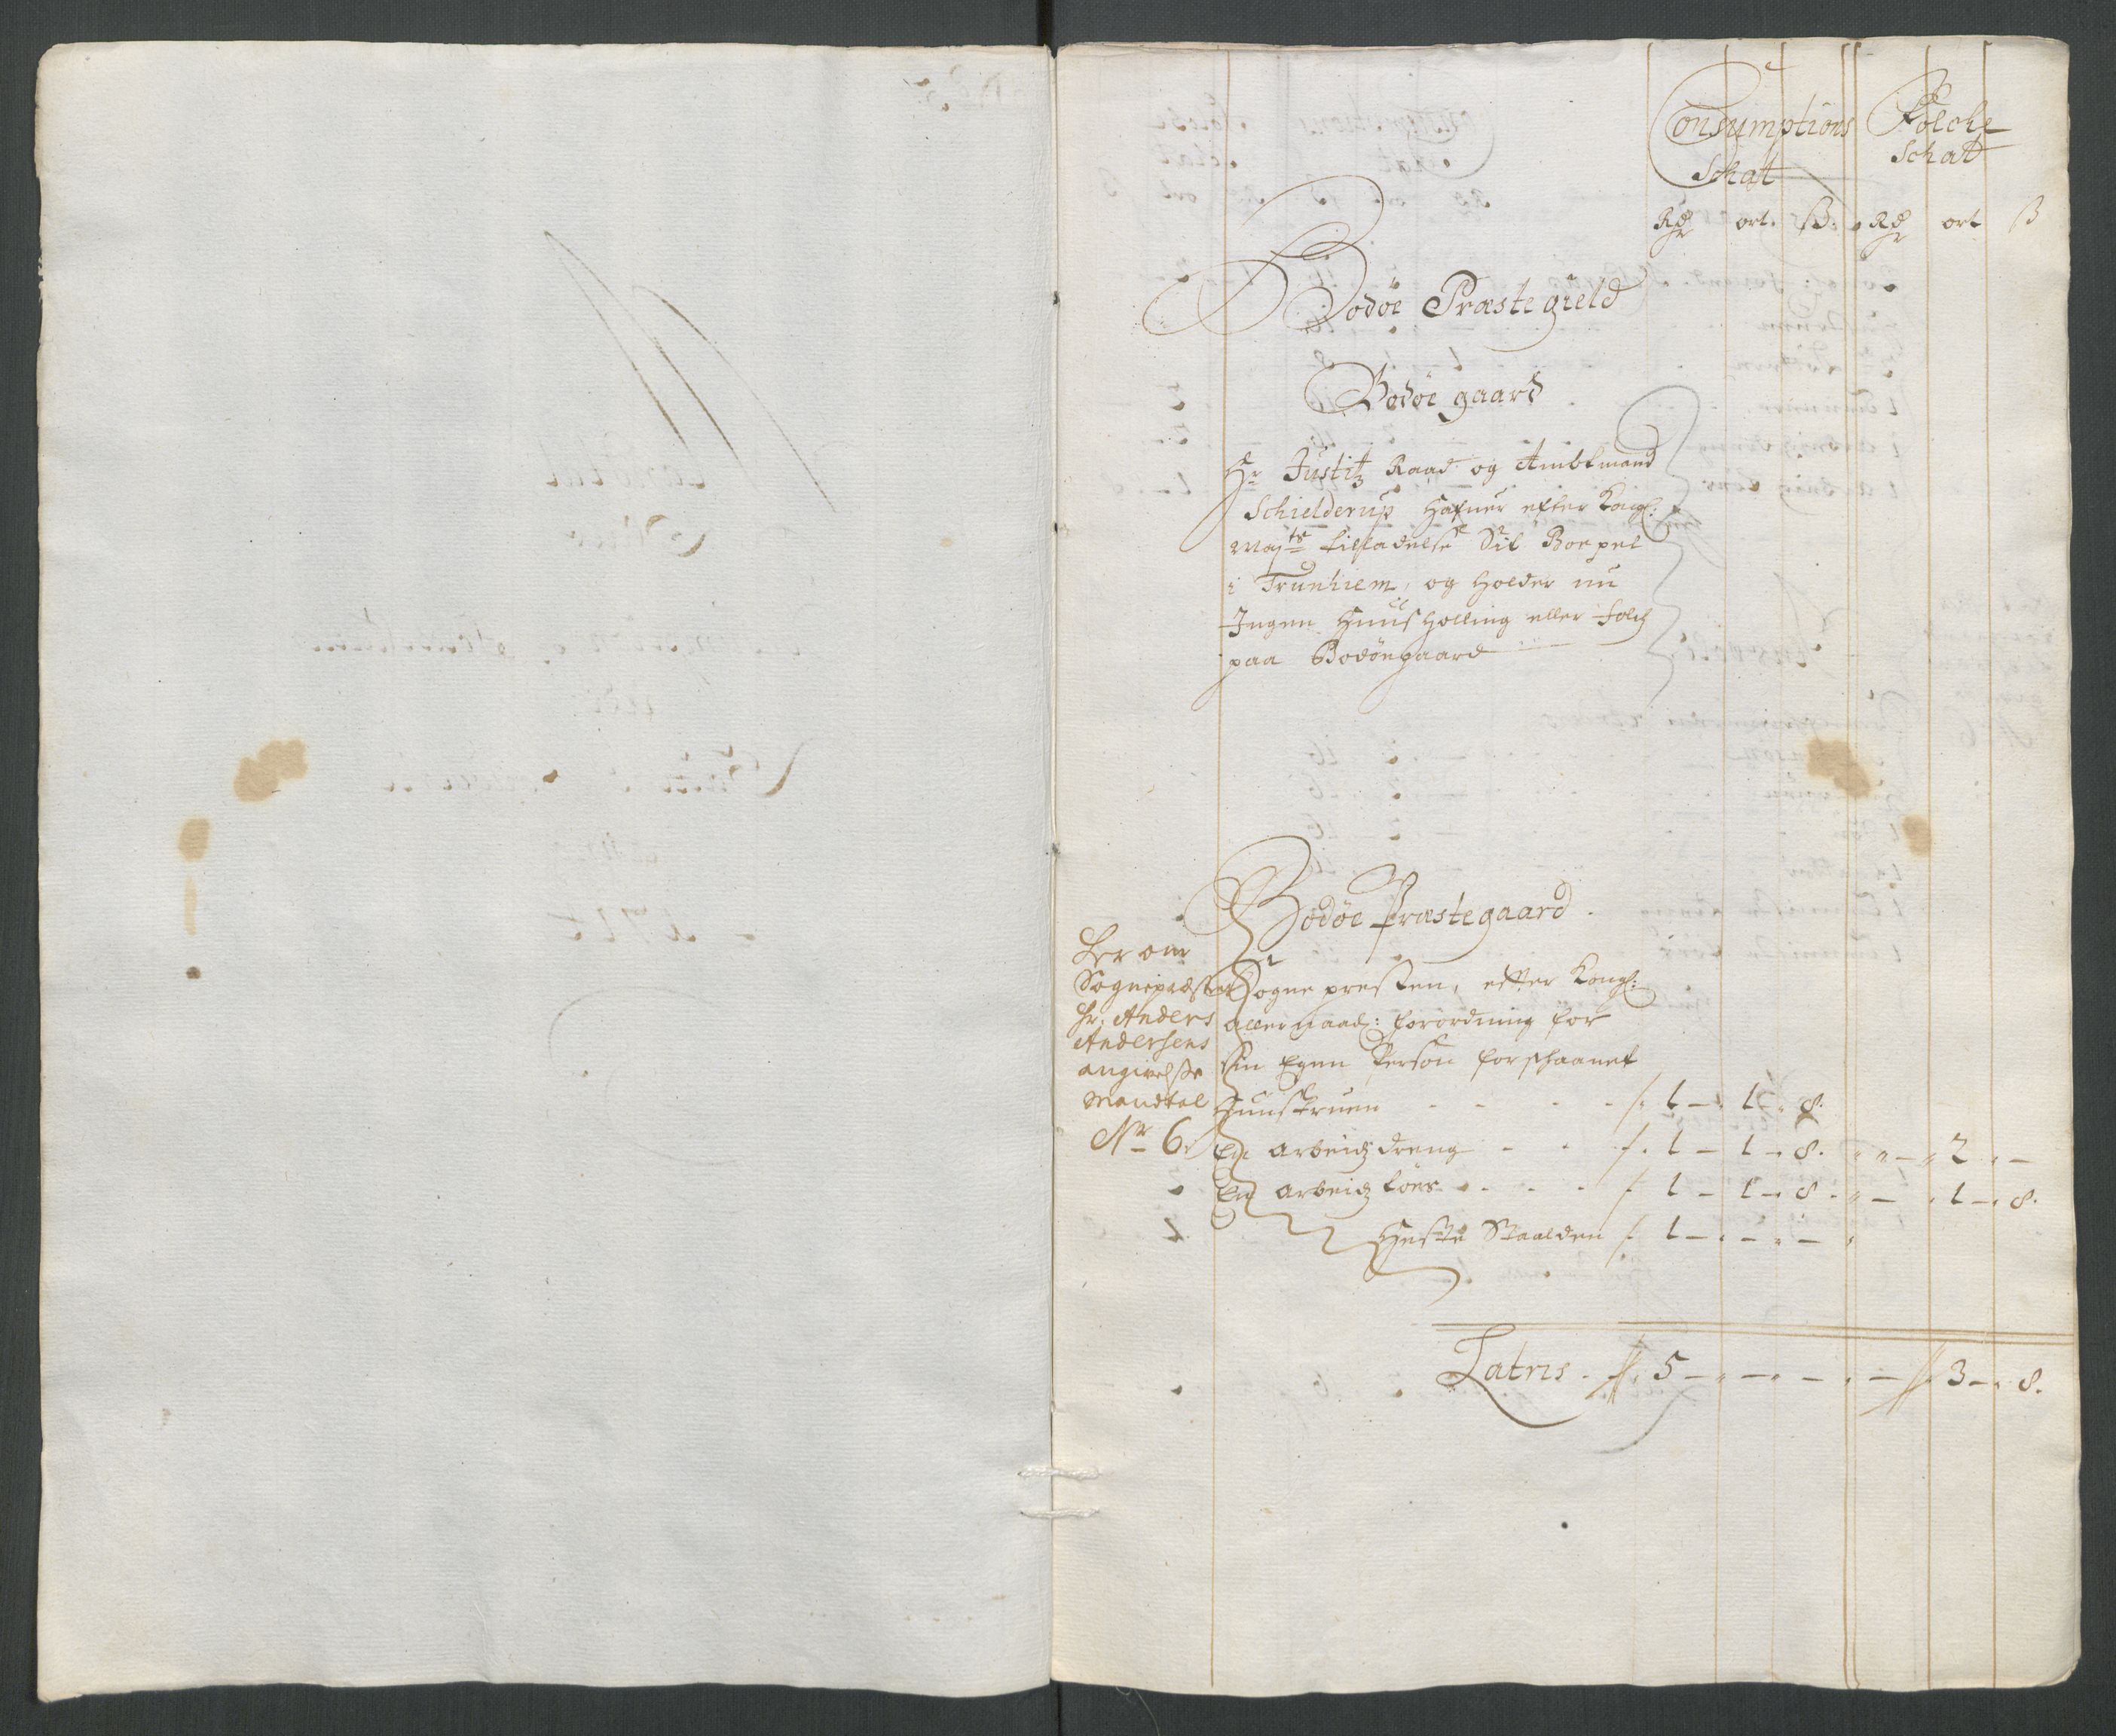 Consumptions Folche
Schat Schat
Rdr ort. ß: Rdr ort ß
Bodøe Præstegield
Bodøe gaard
Hr Justitz Raad og Ambtmand
Schielderup Hafuer efter Kongl:
Mayts tilladelse Sit Boepel
i Trunhiem, og holder nu
Ingen Huusholling eller folch
paa Bodøegaard
Bodøe Præstegaard.
her om
Sognepræsten
Hr. Anders
Andersens
angivelsse
Mandtal
Nr 6.
Sognepresten, efter Kongl:
allernaad: forordning for
sin Egen Person forschaanet
Huustruen - - - - 1 - 1 - 8.
En arbeidz dreng - - 1 - 1 - 8. - 2 -
En arbeidz tøes - - - 1 - 1 - 8. - 1 - 8.
Heste Staalden 1 - - -
Latris 5 - - - 3 - 8.